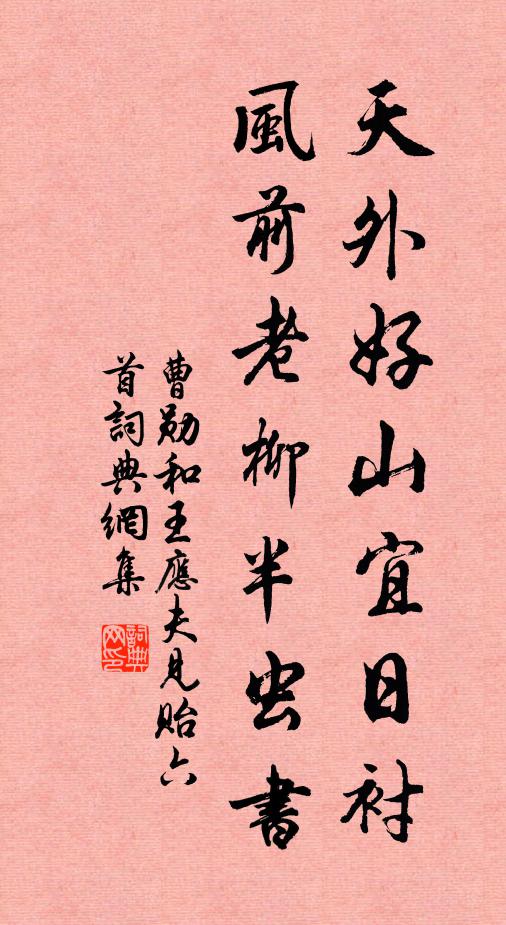 天外好山宜日衬
風前老柳半虫書
曹勋和王應夫見贻六
首詞典網集
詞典網印